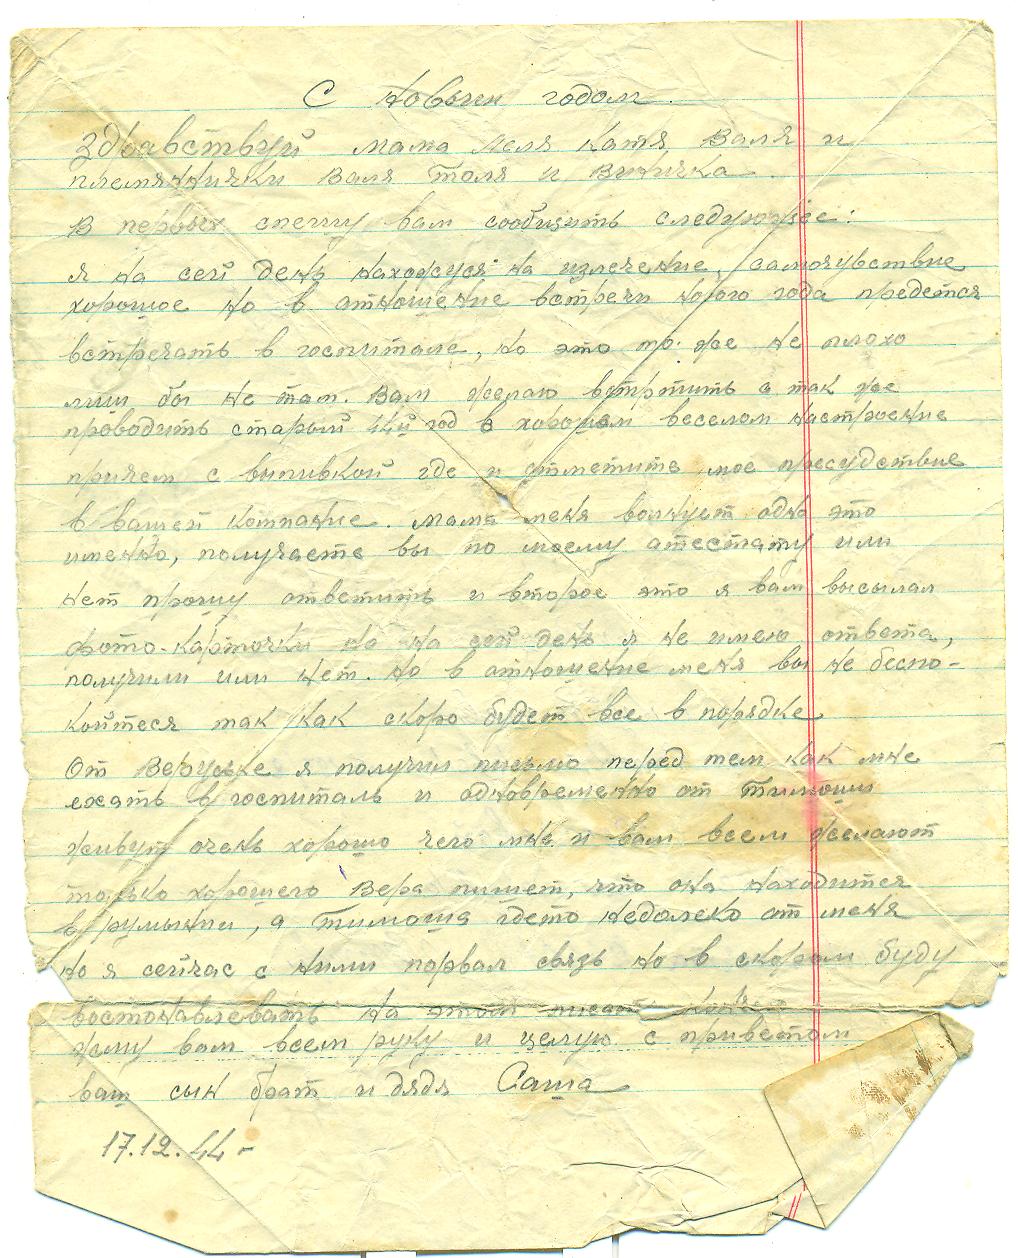 С новым годом.
Здравствуй мама Леля Катя Валя и
племяннички Валя Толя и Виничка.
В первых спешу вам сообщить следующее:
я на сей день нахожуся на излечение, самочувствие
хорошое но в атношение встречи нового года предется
встречать в госпитале, но это то же не плохо
лиш бы не там. Вам желаю встртить а так же
проводить старый 44й год в хорошем веселом настроение
причем с выпивкой где и отметить мое пресудствие
в вашей компание. мама меня волнует одно это
именно, получаете вы по моему атестату или
нет прошу ответить и второе это я вам высылал
фото-карточки но на сей день я не имею ответа,
получили или нет. но в атношение меня вы не беспо-
койтеся так как скоро будет все в порядке
От Веруське я получил письмо перед тем как мне
ехать в госпиталь и одновременно от Тимоши
живут очень хорошо чего мне и вам всем желают
только хорошего Вера пишет, что она находится
в румынии, а Тимоша гдето недалеко от меня
но я сейчас с ними порвал связь но в скором буду
востонавлевать На этом писать
жму вам всем руку и целую с приветом
ваш сын брат и дядя Саша
17.12.44-